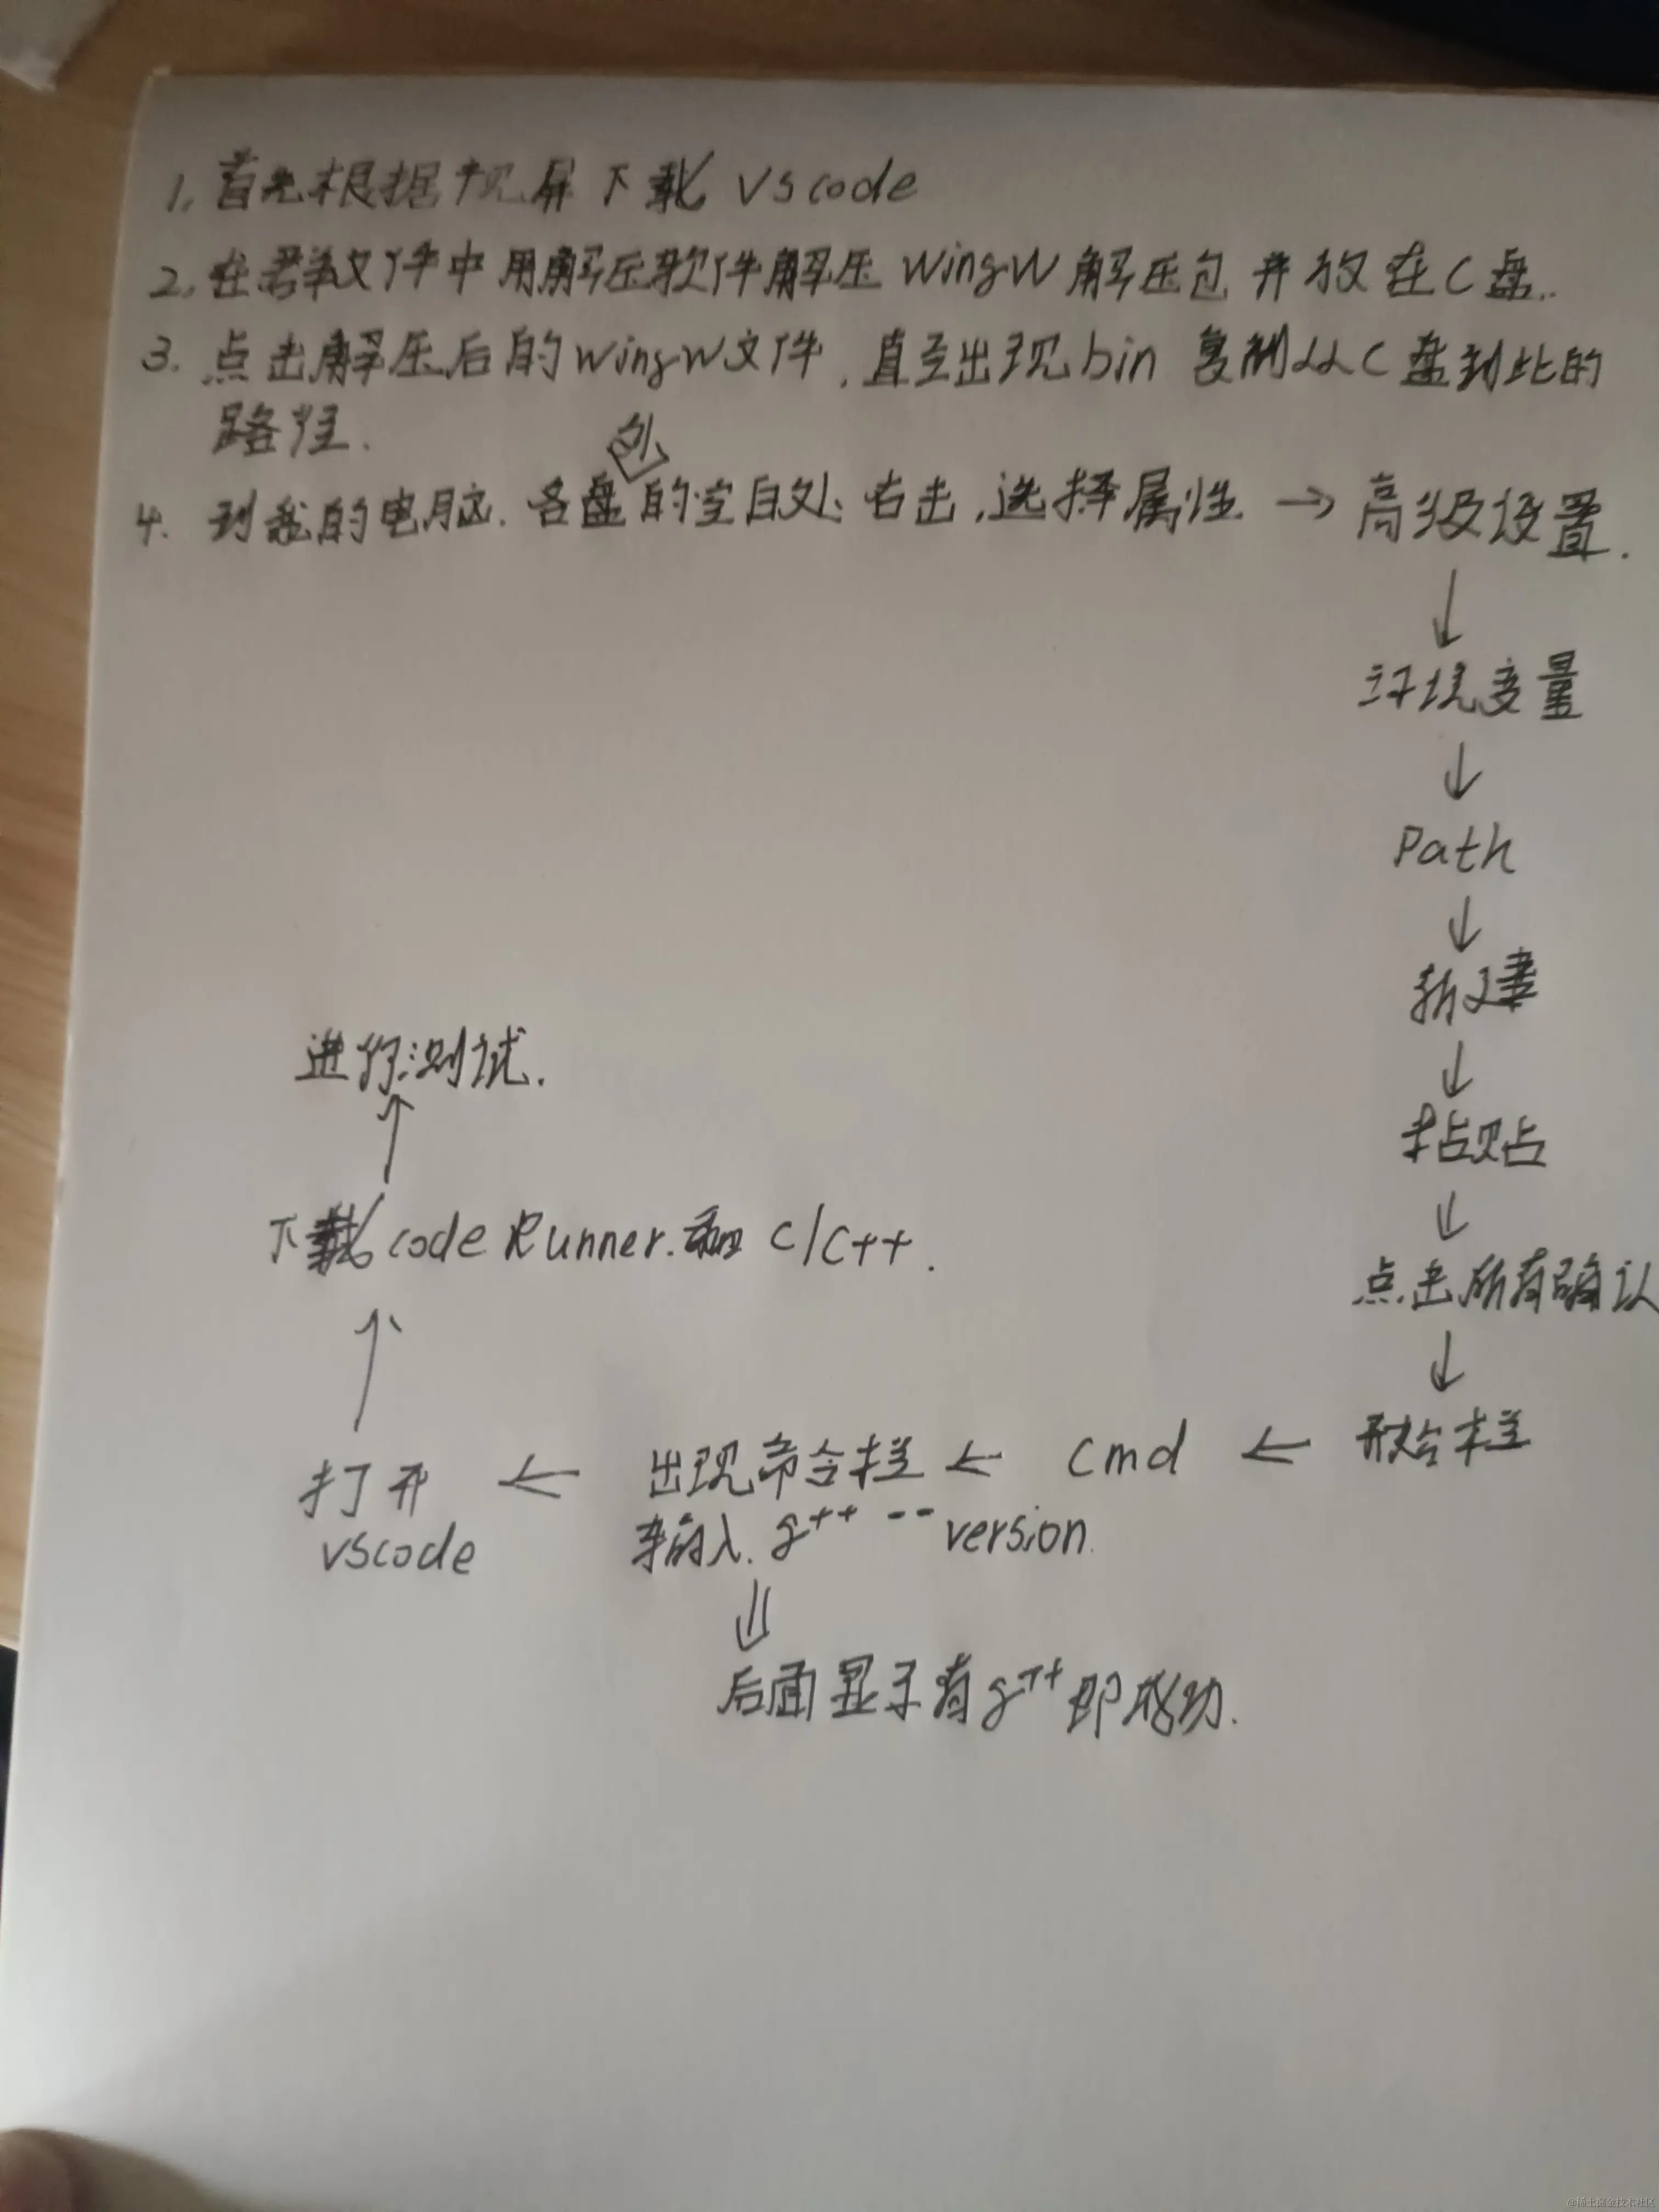 1. 首先根据视屏下载 vscode
2. 在群文件中用解压软件解压 wingw 解压包并放在C盘.
3. 点击解压后的wingw文件,直至出现bin 复制从C盘到此的
路径.
外
4. 到我的电脑.各盘的空白处右击,选择属性 → 高级设置.
↓
环境变量
↓
Path
↓
新建
↓
粘贴
↓
点击所有确认
↓
开始栏
← cmd ←
出现命令栏
输入. g++ --version.
⇓
后面显示有g++即成功.
←
打开
vscode
↑
下载code Runner.和 C/C++.
↑
进行测试.
@稀土掘金技术社区